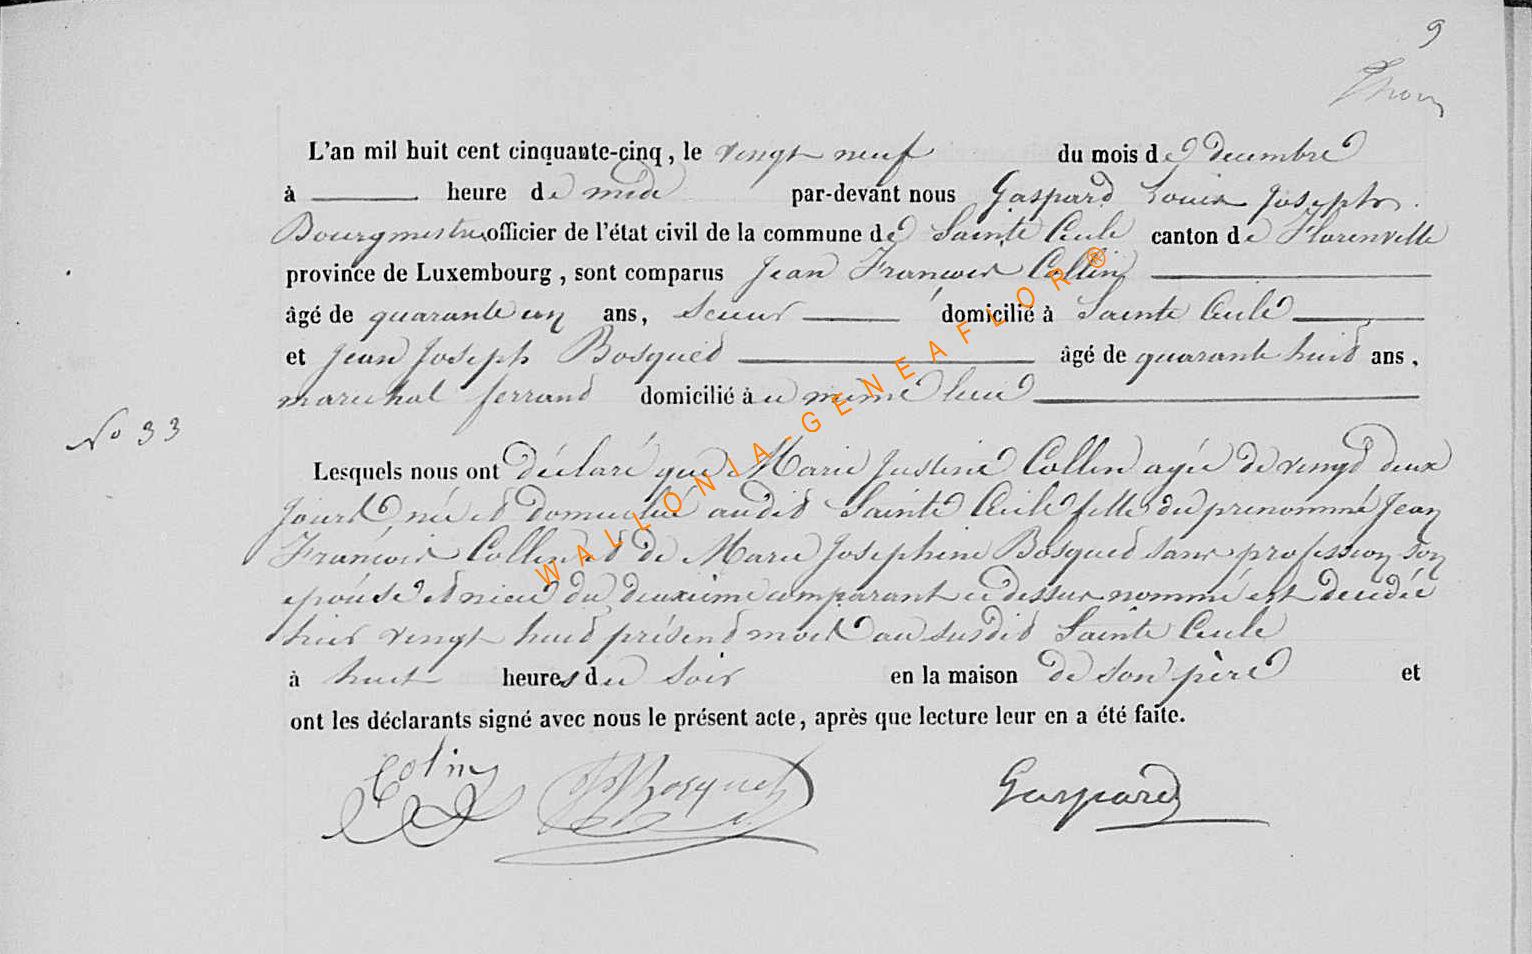 9
L'an mil huit cent cinquante-cinq, le vingt neuf du mois de decembre
à heure de midi par-devant nous Gaspard Louis Joseph
Bourgmestre officier de l'état civil de la commune de Sainte Cecile canton de Florenville
province de Luxembourg, sont comparus Jean François Collin
âgé de quarante un ans, domicilié à Sainte Cecile
et Jean Joseph Bosqued âgé de quarante huid ans,
marechal ferrand domicilié à u même lieu
No 33
Lesquels nous ont déclaré que Marie Justine Collin agée de vingd deux
jours née et domicilié audid Sainte Cecile fille du prenommé Jean
François Collin et de Marie Josephine Bosqued sans profession son
epouse et niece du deuxième comparant ci dessus nommé est decedée
hier vingt huid présend mois au susdid Sainte Cecile
à huit heures du soir en la maison de son père et
ont les déclarants signé avec nous le présent acte, après que lecture leur en a été faite.
Colin JJ Bosquet Gaspard
WALLONIA-GENEAFLOR®